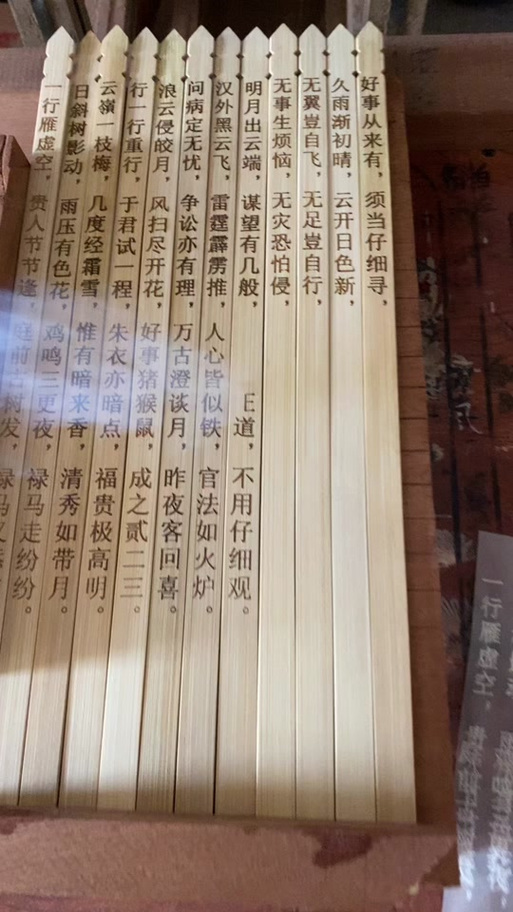 好事从来有,须当仔细寻,
久雨渐初晴,云开日色新,
无翼豈自飞,无足豈自行,
无事生烦恼,无灾恐怕侵,
明月出云端,谋望有几般,道,不用仔细观。
汉外黑云飞,雷霆霹雳推,人心皆似铁,官法如火炉。
问病定无忧,争讼亦有理,万古澄谈月,昨夜客回喜。
浪云侵皎月,风扫尽开花,好事猪猴鼠,成之贰二三。
行一行重行,于君试一程,朱衣亦暗点,福贵极高明。
云嶺一枝梅,几度经霜雪,惟有暗来香,清秀如带月。
日斜树影动,雨压有色花,鸡鸣三更夜,禄马走纷纷。
一行雁虚空,贵人节节逢,庭前古树发,禄马又
一行雁虚空,